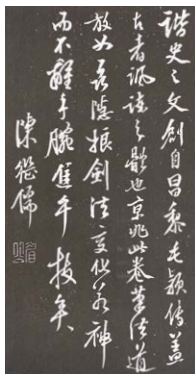 諧史之文創自昌黎毛穎傳蓋
古者諷諫之體也京兆此卷筆法遒
放如聶隱娘劍法變化若神
而不離手腕進乎技矣
陳繼儒